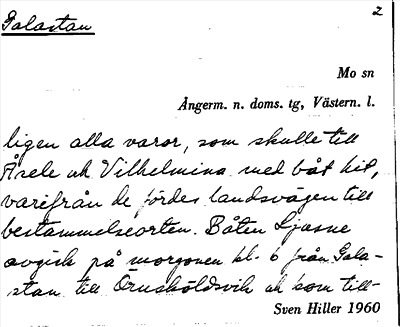 Galastan
2
Mo sn
Ångerm. n. doms. tg, Västern. l.
ligen alla varor, som skulle till
Åsele och Vilhelmina med båt hit,
varifrån de fördes landsvägen till
bestämmelseorten. Båten Ljusne
avgick på morgonen kl. 6 från Gala-
stan till Örnsköldsvik och som till-
Sven Hiller 1960